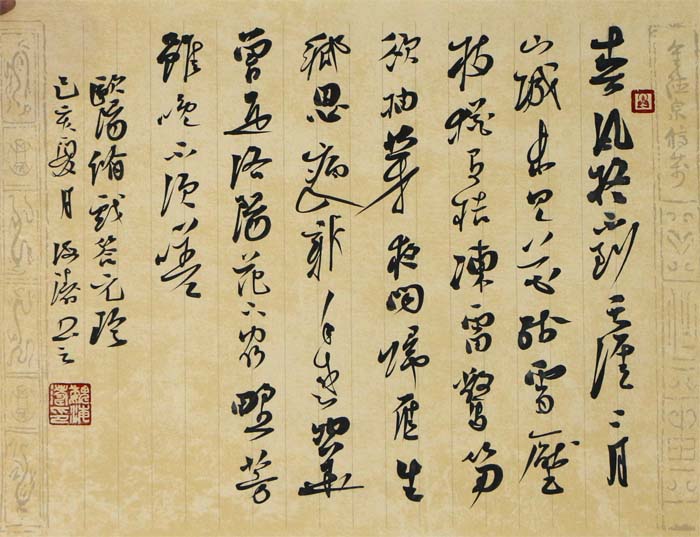 春風疑不到天涯二月
山城未見花殘雪壓
枝猶有桔凍雷驚筍
欲抽芽夜聞歸雁生
鄉思病入新年感物華
曾是洛陽花下客野芳
雖晚不須嗟
歐陽脩戲答元珍
己亥夏月海濤書之